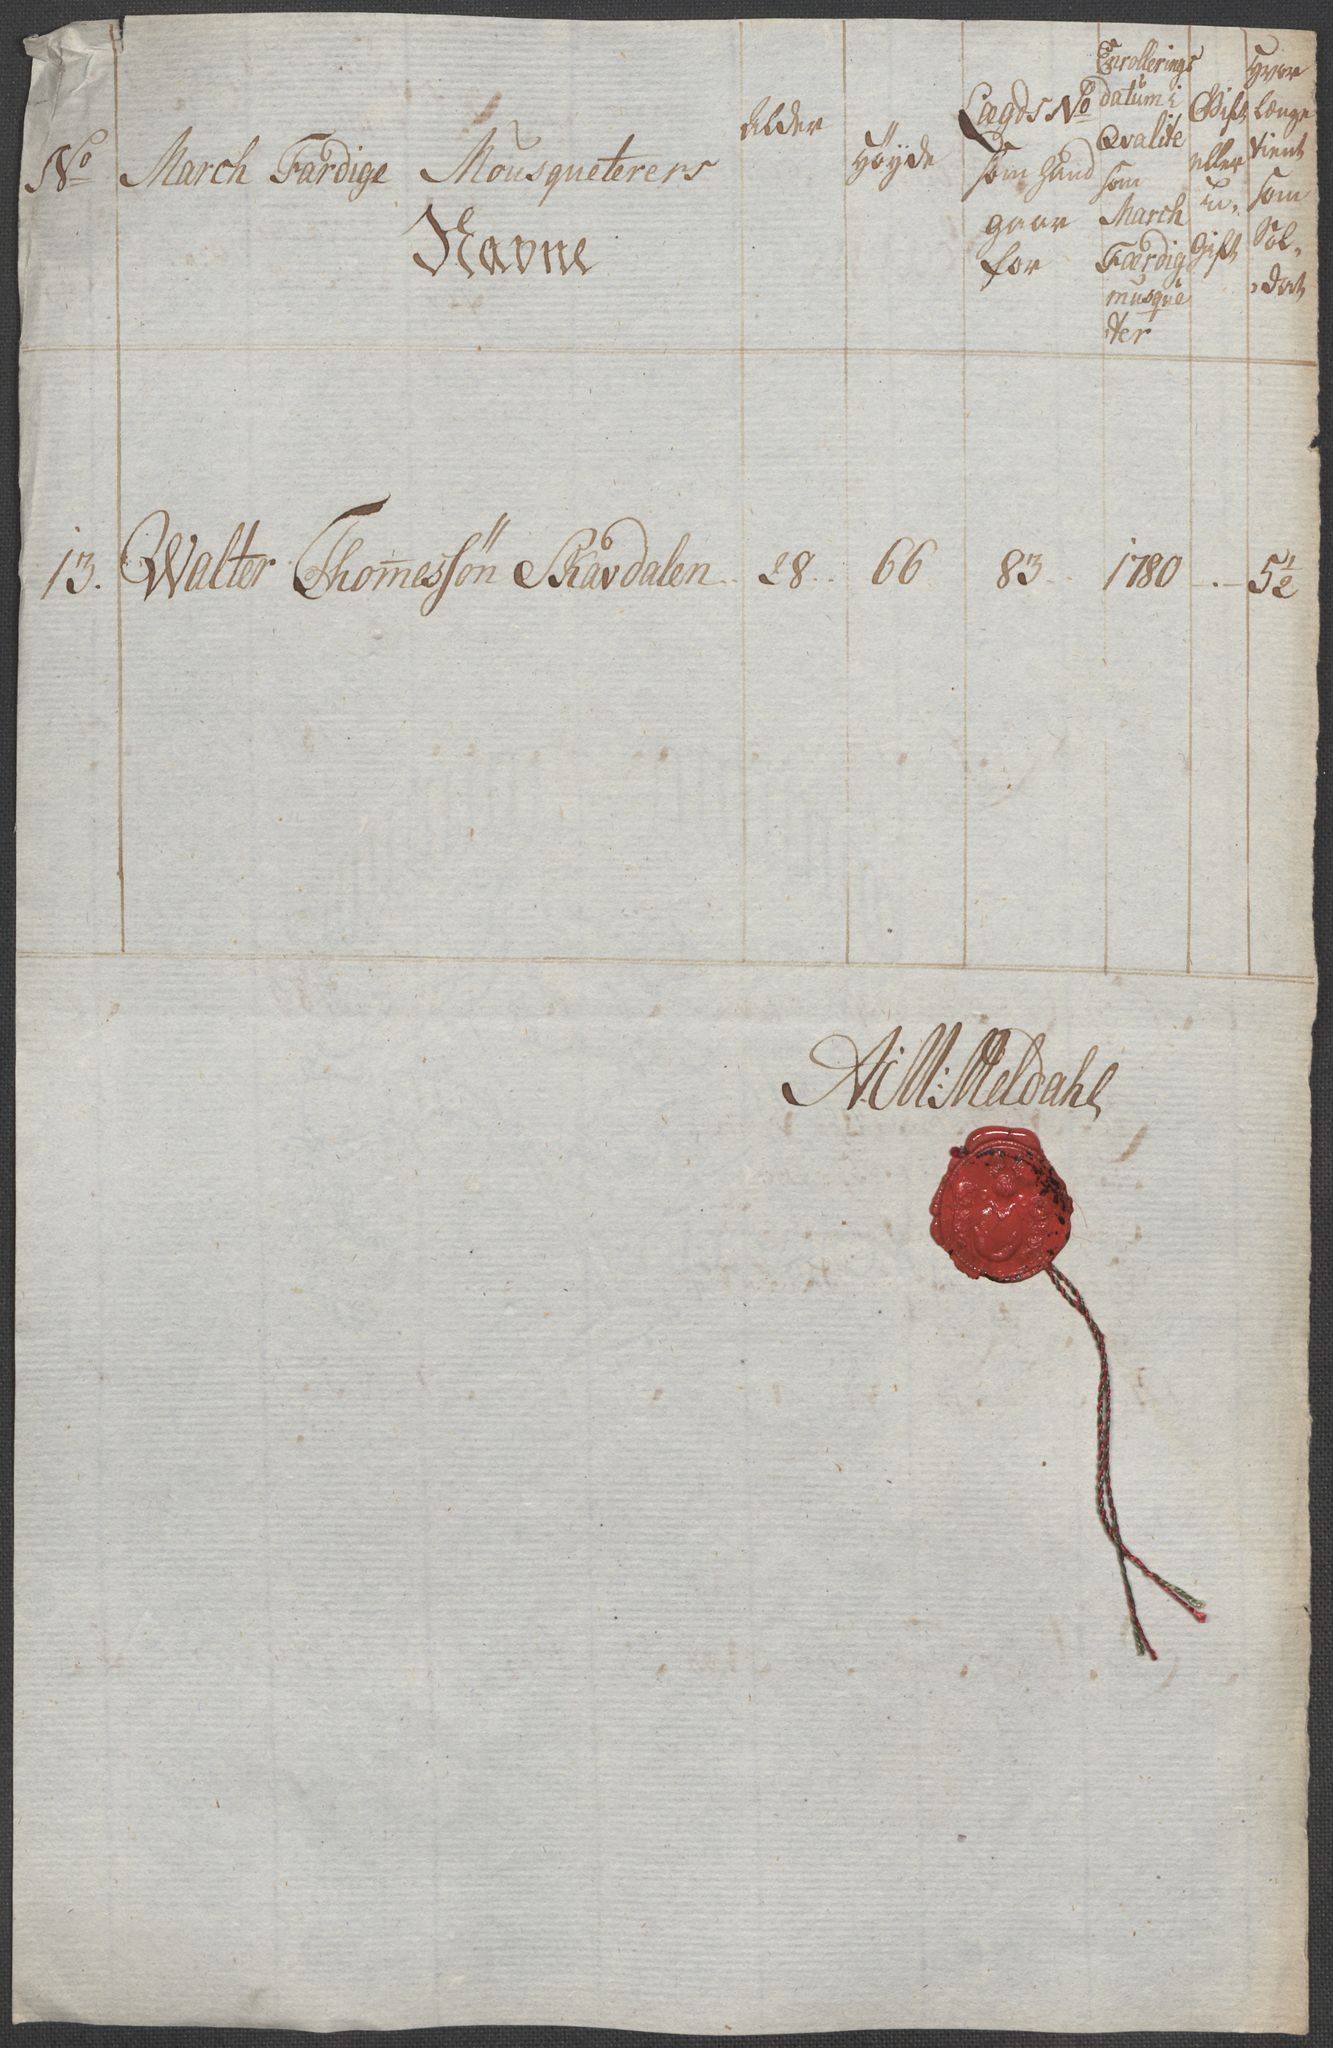 No
March Færdige Mousqueterers
Navne
Alder
Høyde
Lægds No
som hand
gaar
for
Enrollerings
datum i
Qvalite
som
March
Færdig
musque
ter
Gift
eller
u-
gift
Hvor
længe
tient
som
Sol-
dat
13. Walter Thom̄essön Skavdalen .. 28 .. 66 83 .. 1780 .. 5½
A: M: Meldahl